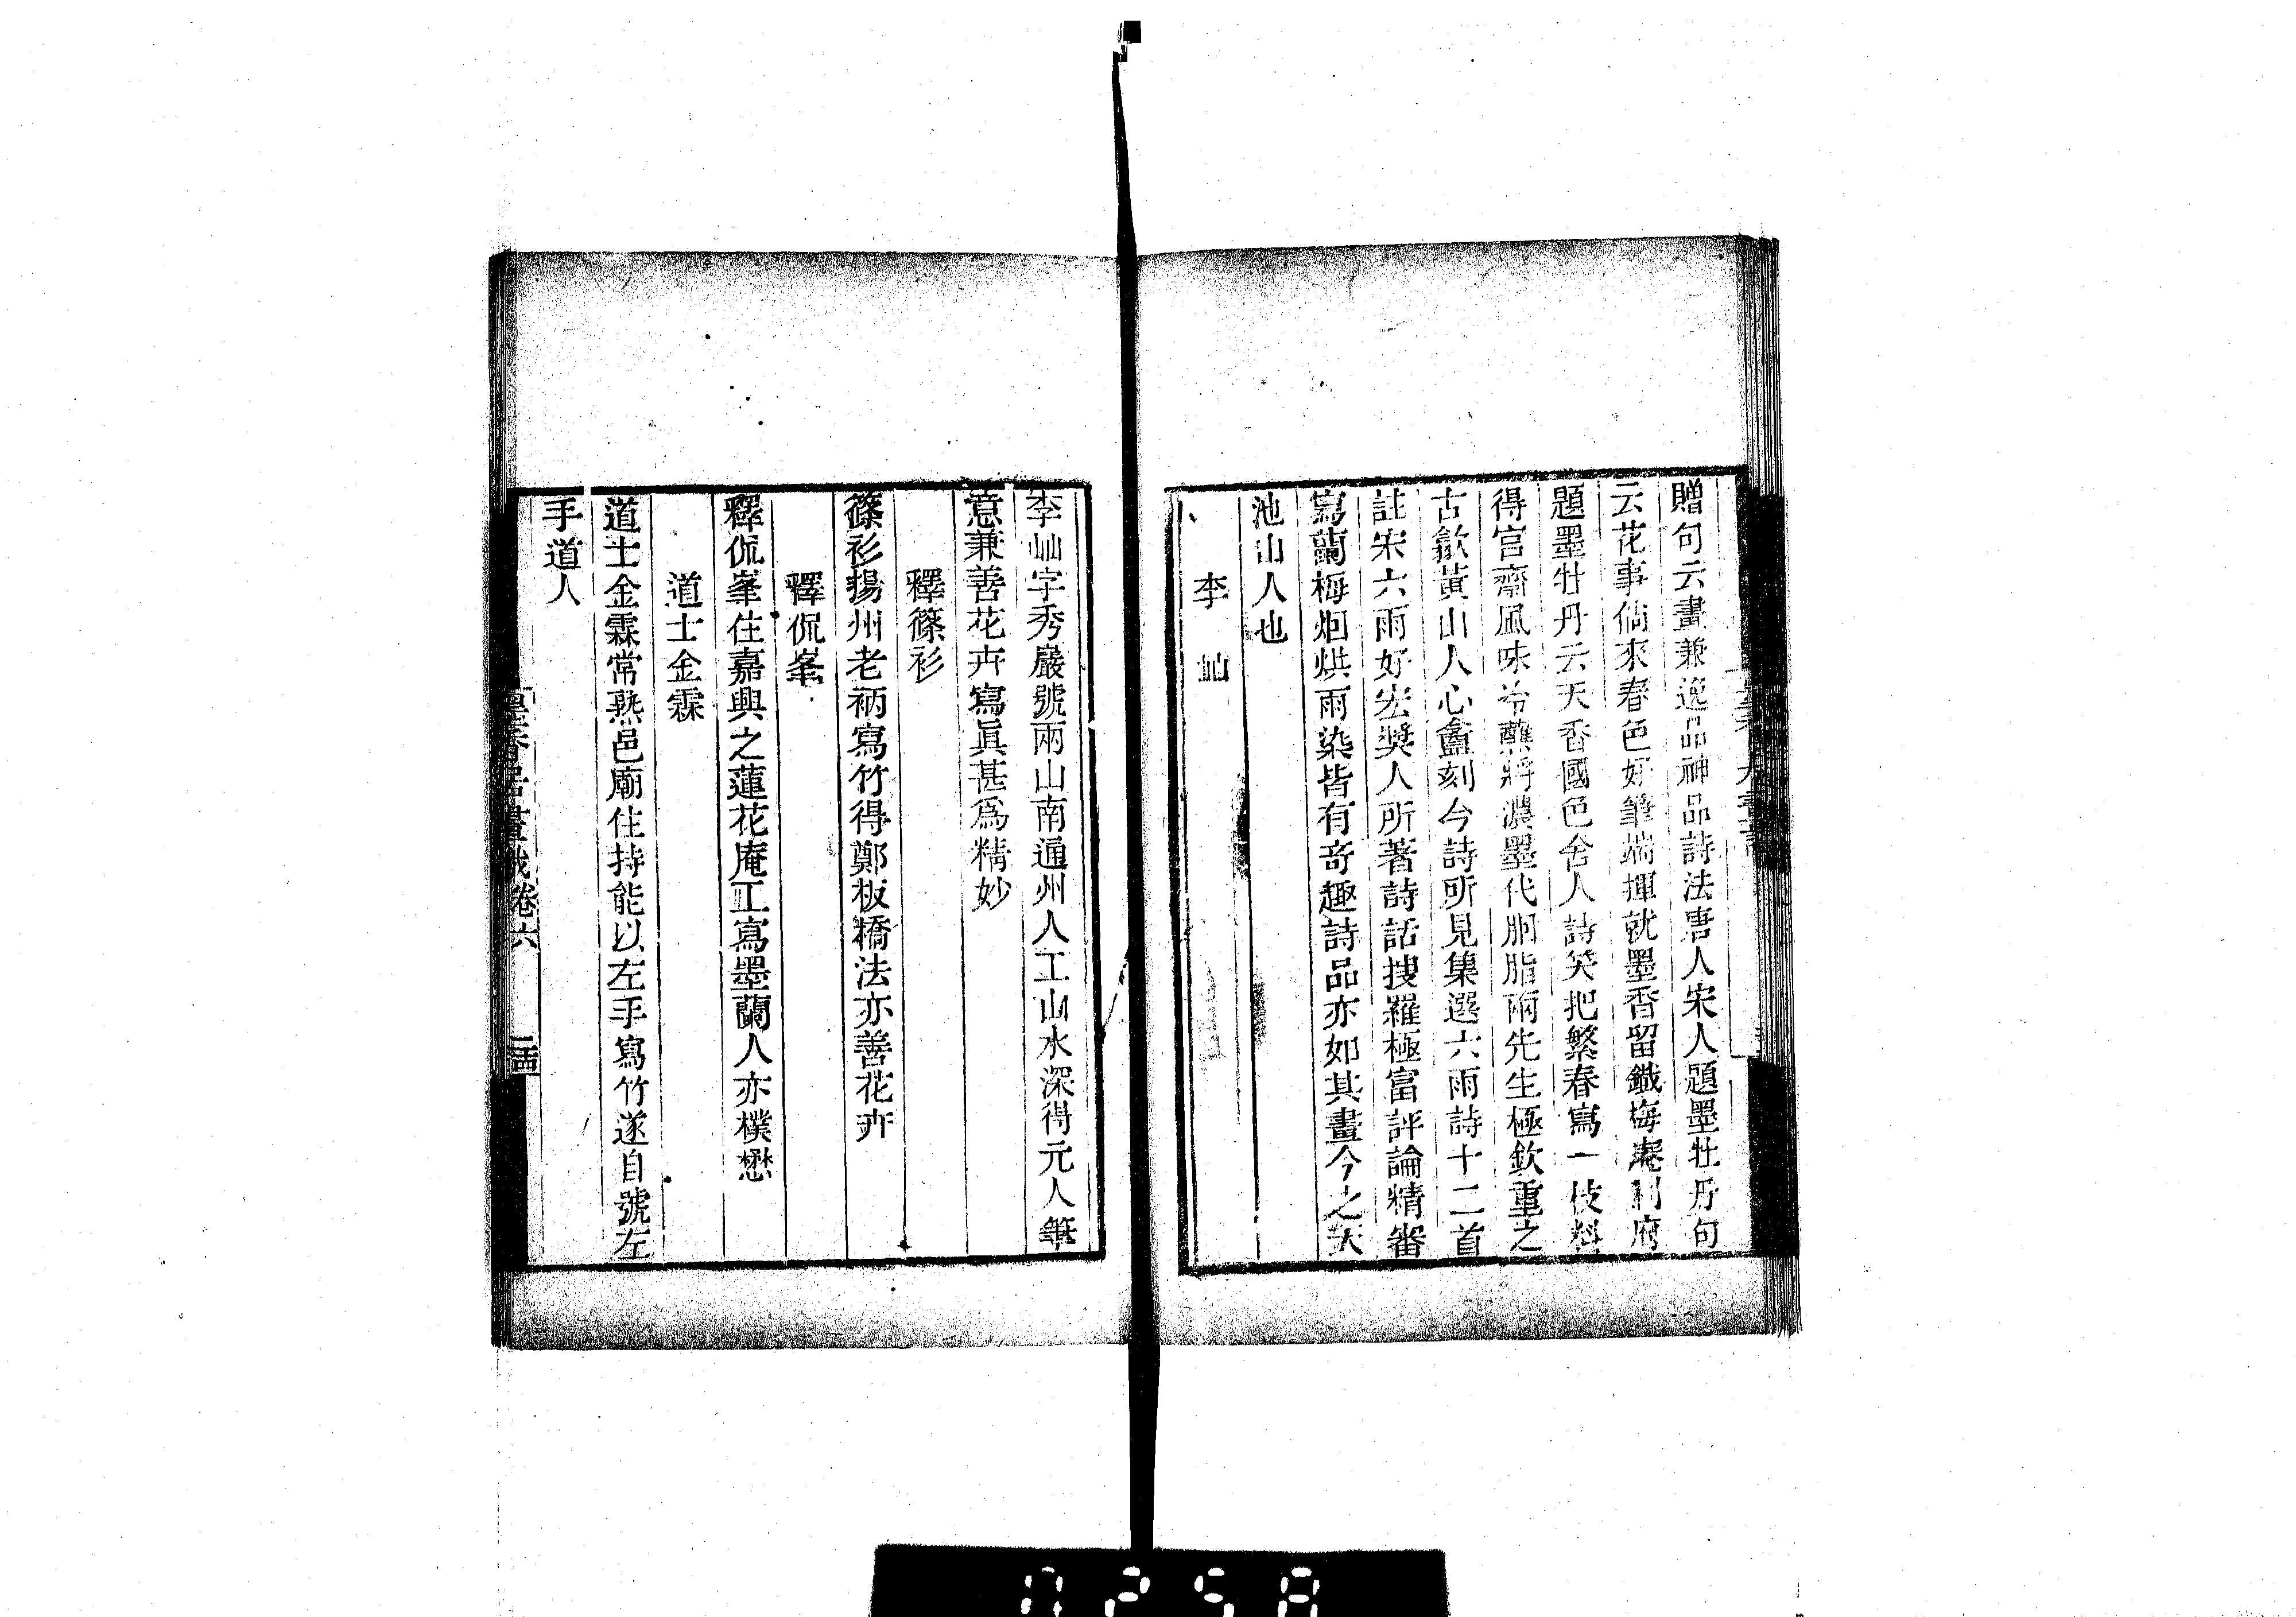 贈句云畫兼逸品神品詩法唐人宋人題墨牡丹句
云花事倘來春色好筆端揮就墨香留鐵梅庵制府
題墨牡丹云天香國色舍人詩笑把繁春寫一枝料
得官齋風味冷蘸將濃墨代胭脂兩先生極欽重之
古歙黃山人心盦刻今詩所見集選六雨詩十二首
註宋六雨好宏奬人所著詩話搜羅極富評論精審
寫蘭梅烟烘雨染皆有奇趣詩品亦如其畫今之天
池山人也
李㠲
李㠲字秀巖號兩山南通州人工山水深得元人筆
意兼善花卉寫眞甚爲精妙
釋篠衫
篠衫揚州老衲寫竹得鄭板橋法亦善花卉
釋侃峯
釋侃峯住嘉興之蓮花庵工寫墨蘭人亦樸懋
道士金霖
道士金霖常熟邑廟住持能以左手寫竹遂自號左
手道人
墨香居畫識卷六